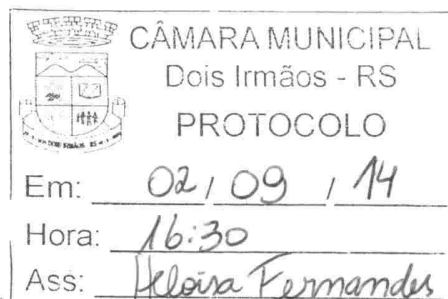 CÂMARA MUNICIPAL
Dois Irmãos - RS
PROTOCOLO
Em: 02 / 09 / 14
Hora: 16:30
Ass: Heloisa Fernandes